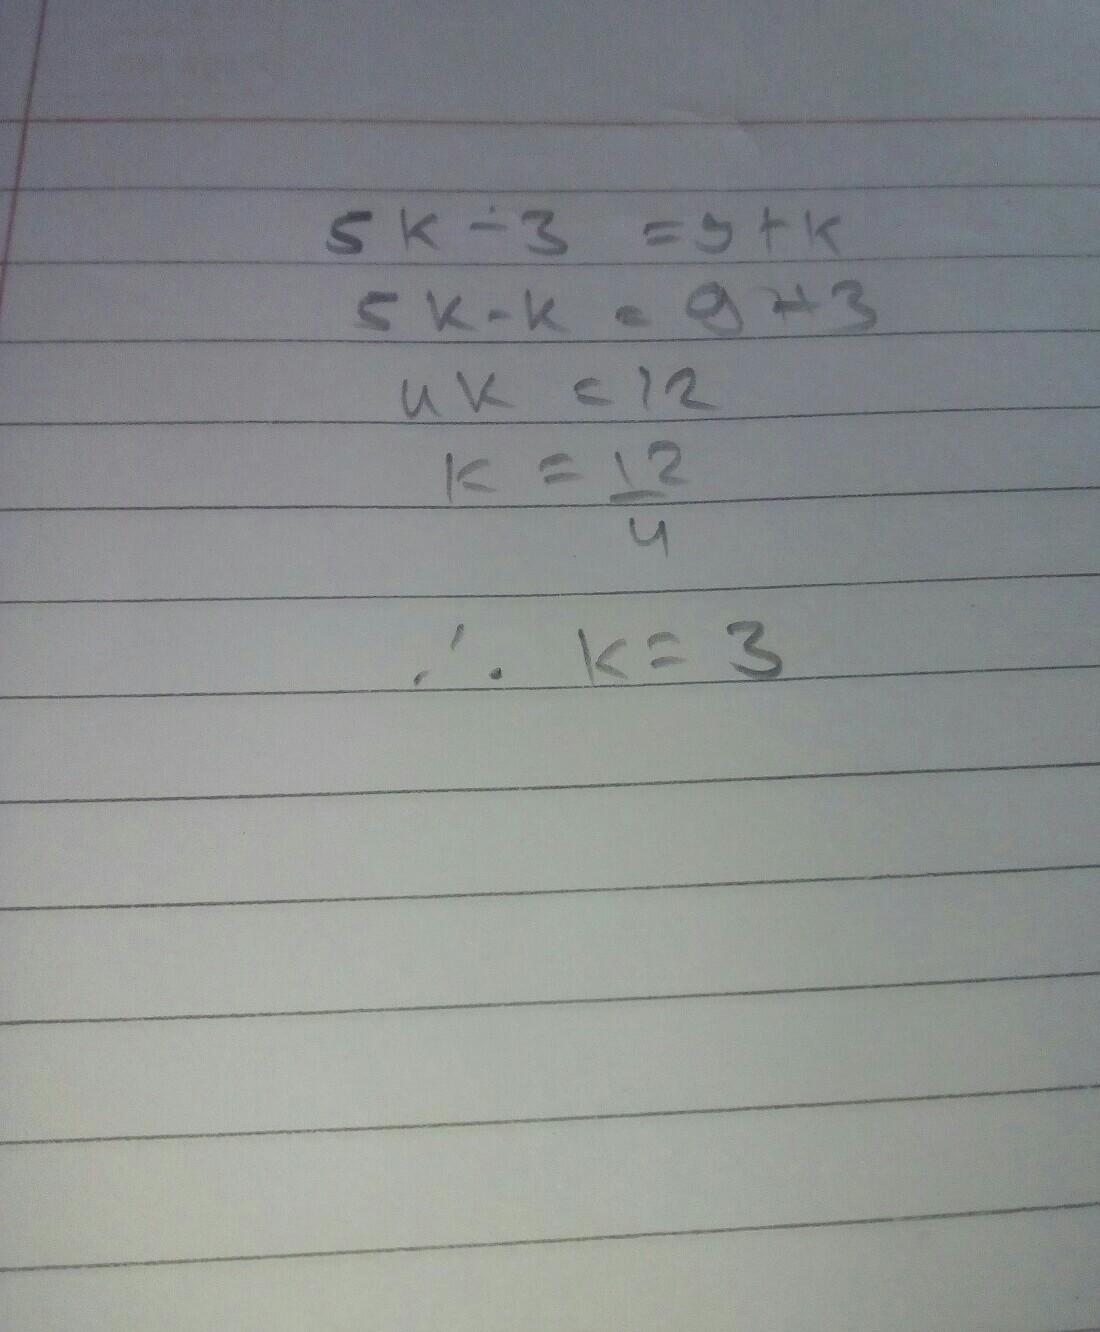 5k - 3 = 9 + k
5k - k = 9 + 3
4k = 12
k = 12/4
∴ k = 3